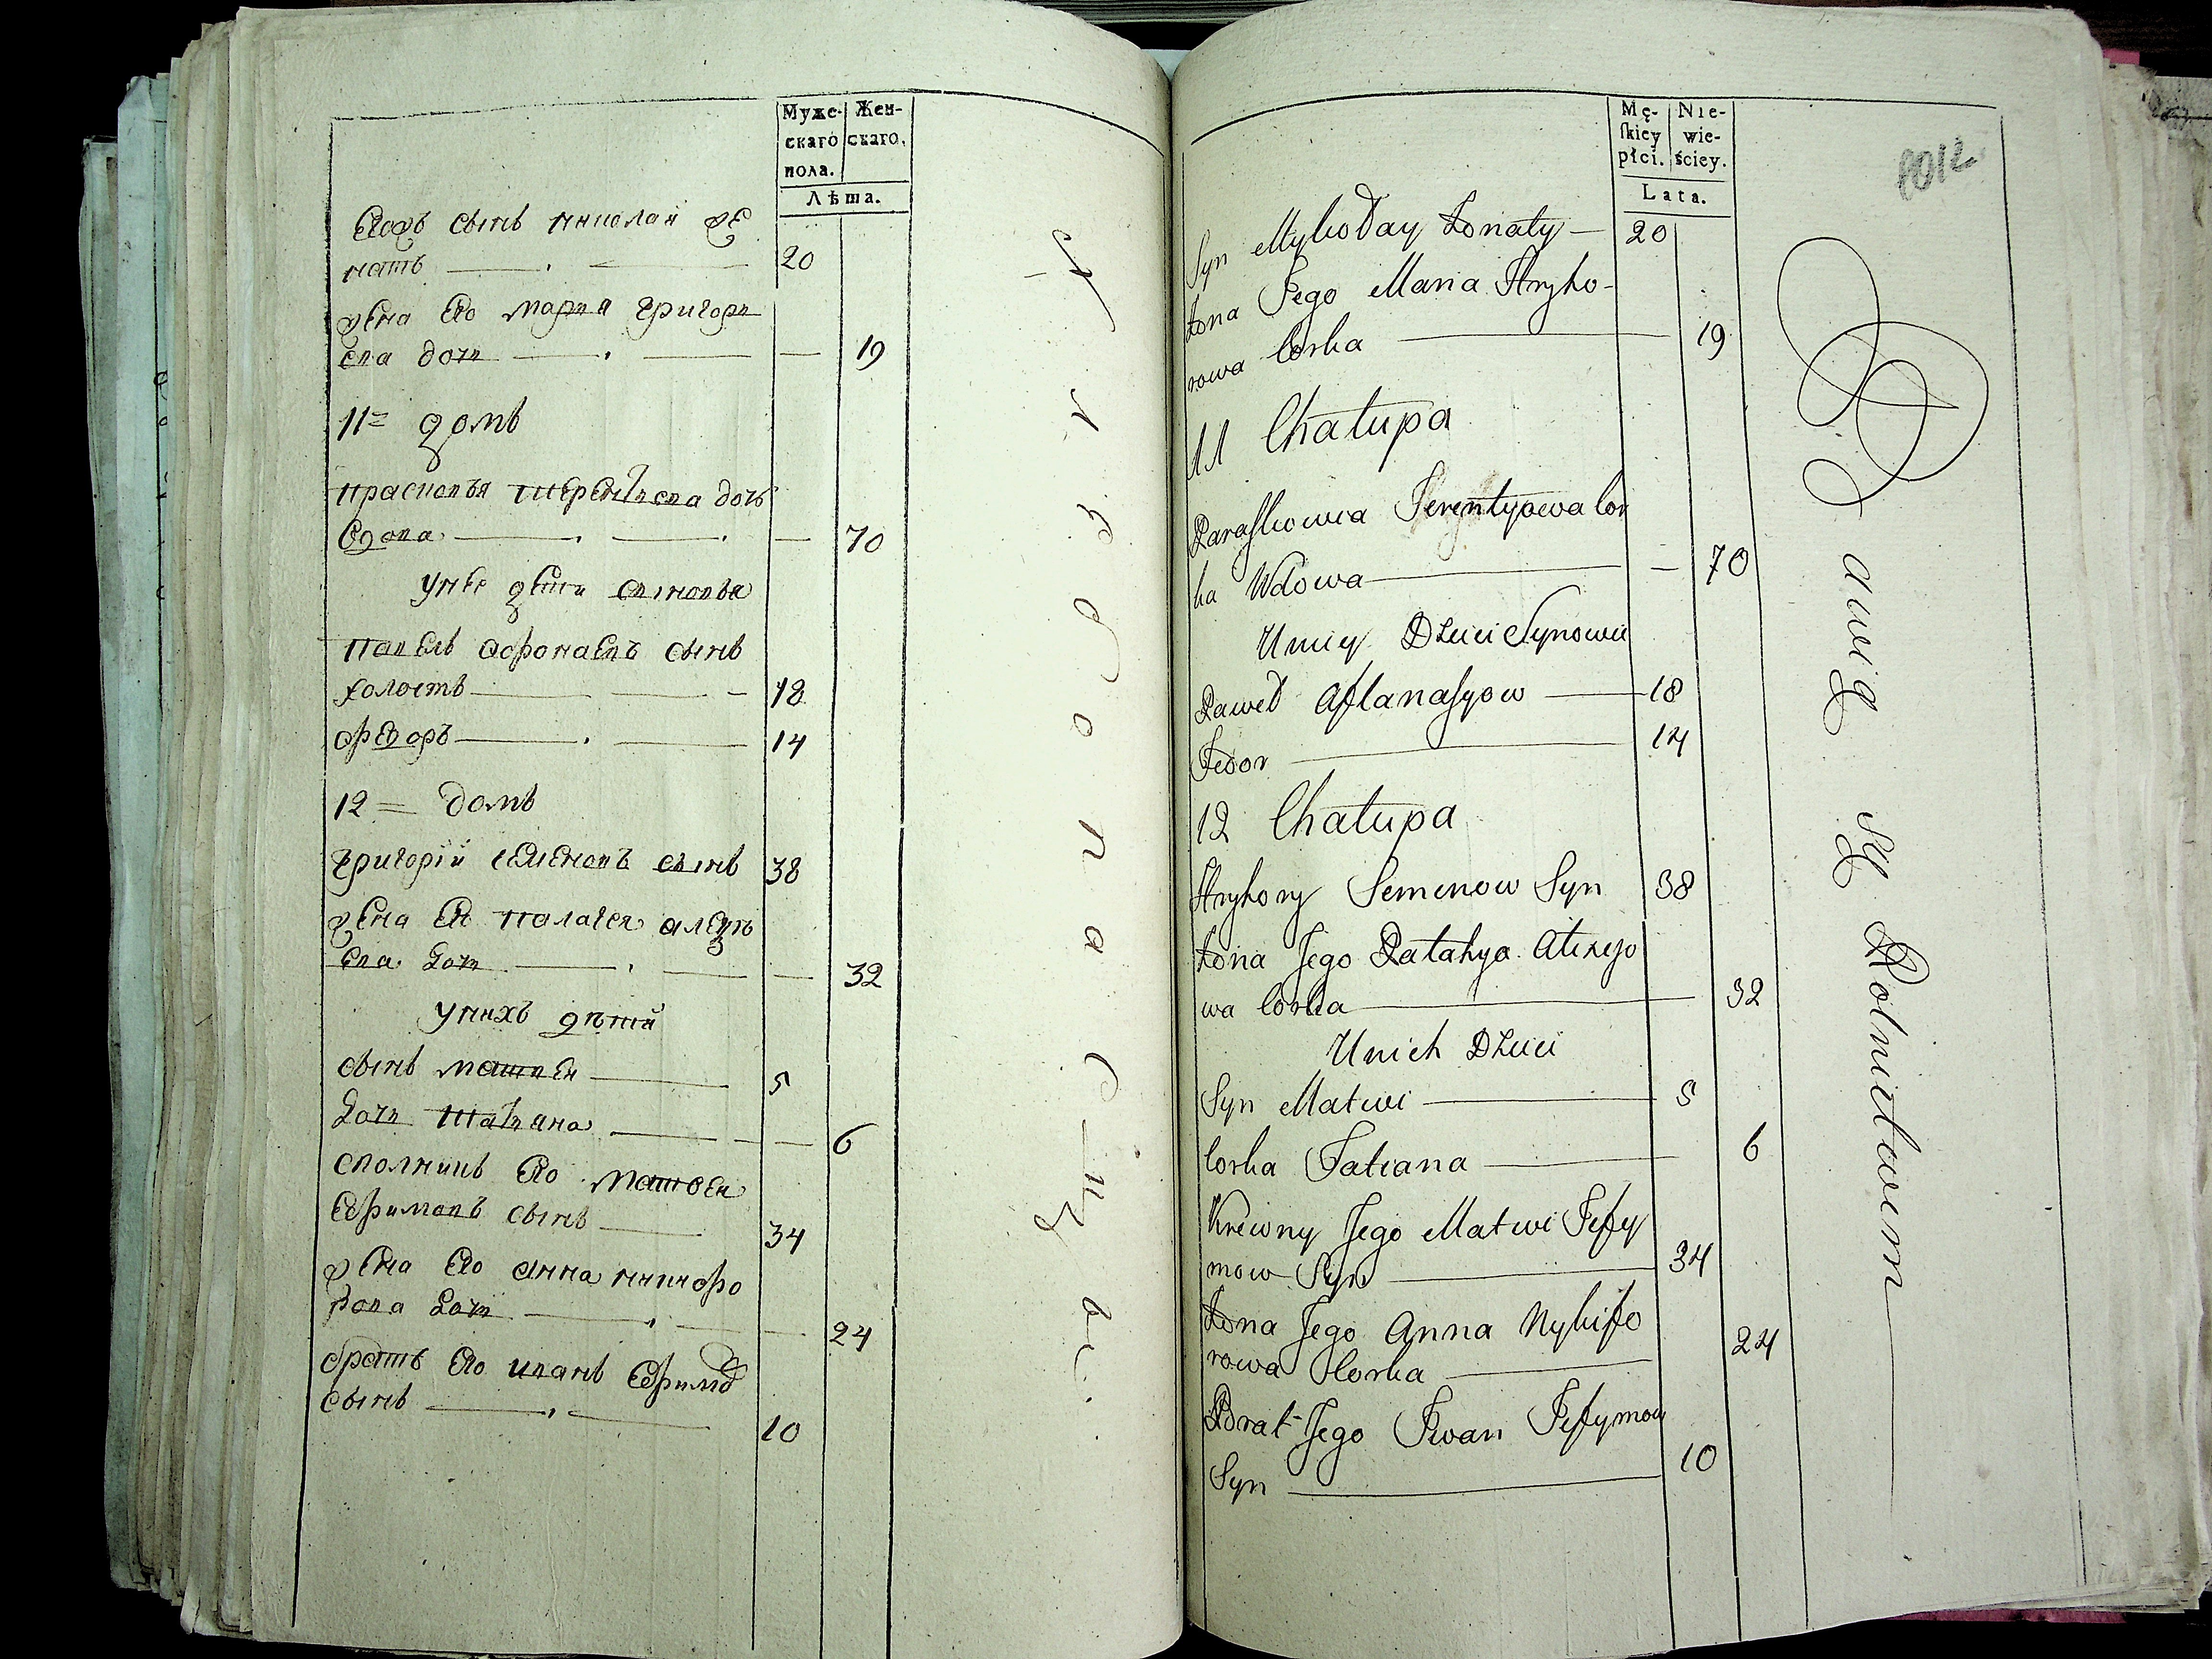 Муже-
скаго
пола.
Жен-
скаго.
Лѣта.
Еговъ сынъ николай же
натъ 20
жена Его мария григори
ева дочь 19
11= домъ
прасковья терентиева дочь
вдова 70
у нее дети сыновья
павелъ афонаевъ сынъ
холостъ 18
федоръ 14
12= домъ
григорiй семеновъ сынъ 38
жена Ево палагея алексѣ
ева дочь 32
у нихъ дѣтей
сынъ матвей 5
дочь татияна 6
Его матвей
Ефимовъ сынъ 34
жена Его анна никифо
рова дочь 24
братъ Его иванъ Ефимо
сынъ 10
Mę-
ſkiey
płci.
Nie-
wie-
ściey.
Lata.
1012
Syn Mykołay Żonaty 20
Żona Jego Maria Hryho-
rowa Corka 19
11 Chałupa
Paraſkowia Terentyowa Cor
ka Wdowa 70
U niey Dzieci Synowie
Paweł Aftanaſyow 18
Fedor 14
12 Chałupa
Hryhory Semenow Syn 38
Żona Jego Pałahya Alexyjo
wa Corka 32
U nich Dzieci
Syn Matwi 5
Corka Tatiana 6
Krewny Jego Matwi Jefy
mow Syn 34
Żona Jego Anna Nykifo
rowa Corka 24
Brat Jego Iwan Jefymow
Syn 10
Bawią się Rolnictwem